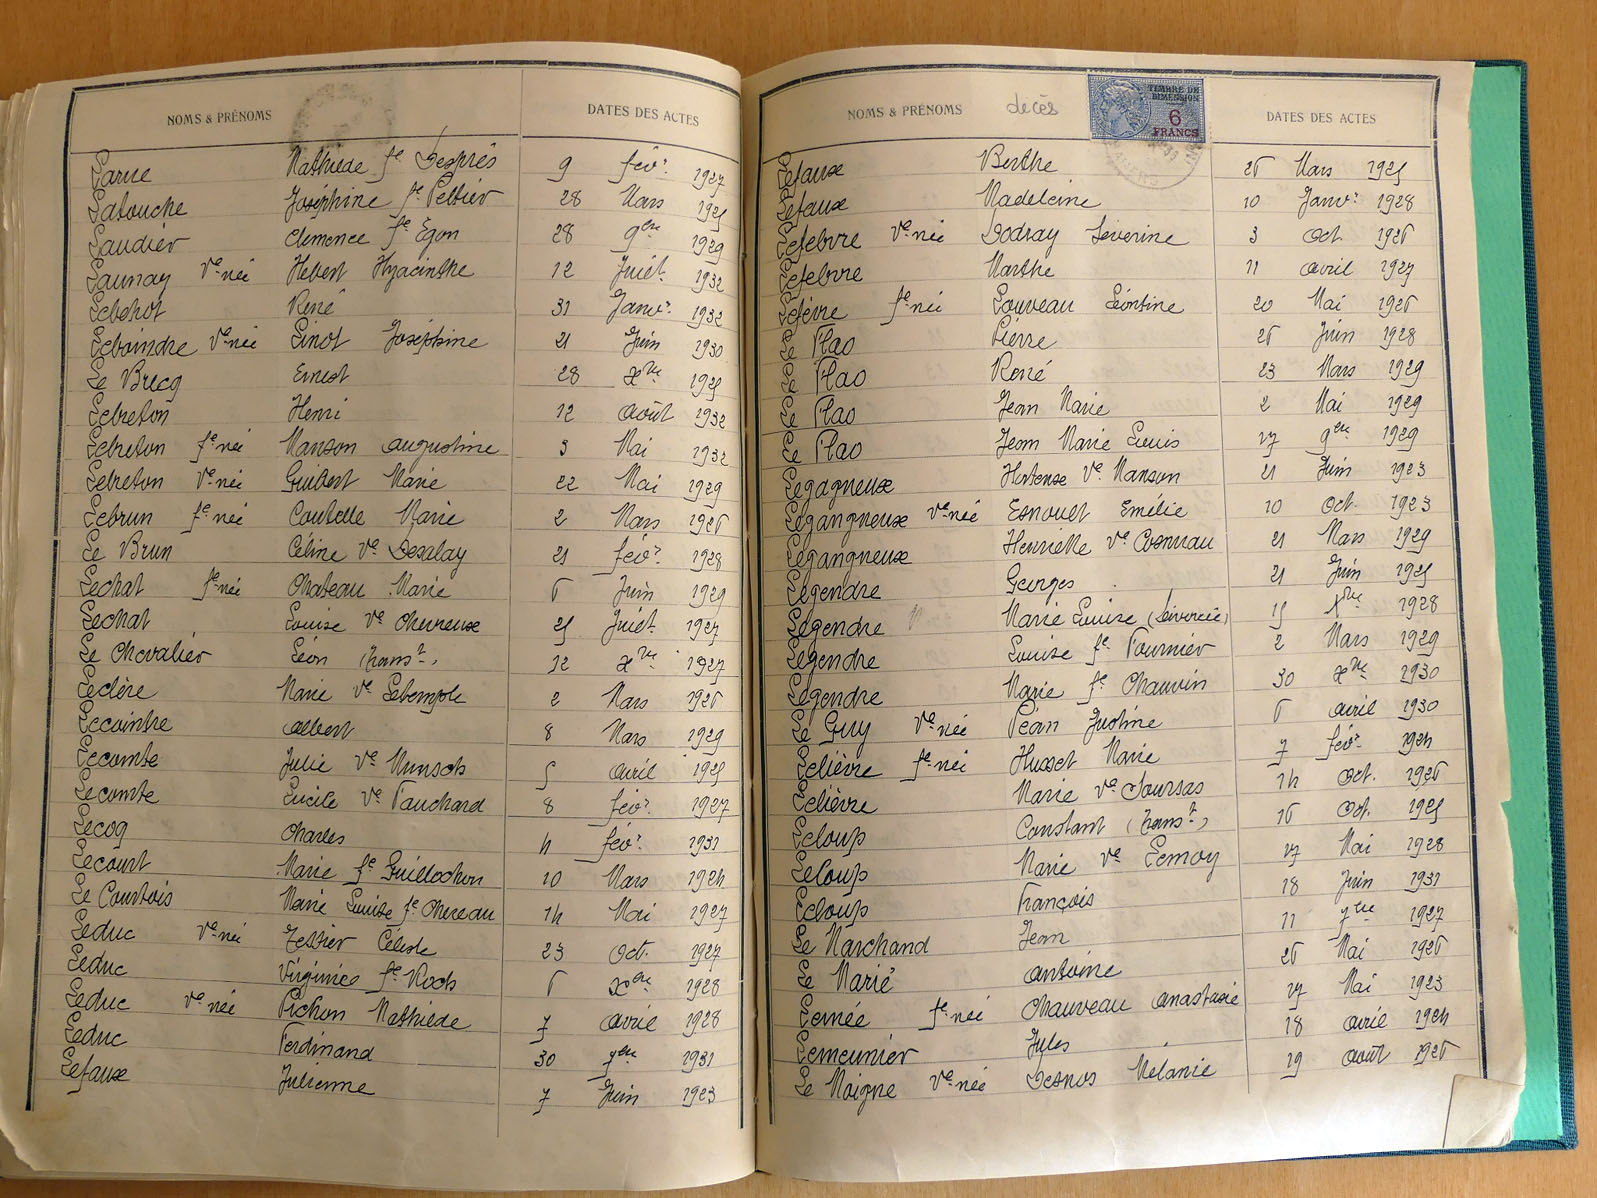 NOMS & PRÉNOMS DATES DES ACTES
Larue Mathilde fe Després 9 févr 1927
Latouche Joséphine fe Peltier 28 Mars 1925
Laudier Clemence fe Egon 28 9bre 1929
Launay Ve née Hebert Hyacinthe 12 Juiet. 1932
René 31 Janvr 1932
Leboindre Ve née Pinot Joséphine 21 Juin 1930
Le Brecq Ernest 28 Xbre 1925
Lebreton Henri 12 août 1932
Lebreton fe née Manson augustine 3 Mai 1932
Lebreton Ve née Guibert Marie 22 Mai 1929
Lebrun fe née Coutelle Marie 2 Mars 1926
Le Brun Céline Ve Dezalay 21 févr 1928
Lechat fe née Chateau Marie 6 Juin 1929
Lechat Louise Ve Chevreux 25 Juiet. 1927
Le Chevalier Léon (transon) 12 Xbre 1927
Leclère Marie Ve Letemple 2 Mars 1926
Lecointre albert 8 Mars 1929
Lecomte Julie Ve Munsch 5 avril 1925
Lecomte Lucile Ve Fauchard 8 févr 1927
Lecoq Charles 4 févr 1931
Lecourt Marie fe Guillochon 10 Mars 1924
Le Courtois Marie Louise fe Chereau 14 Mai 1927
Leduc Ve née Tessier Céleste 23 Oct. 1927
Leduc Virginie fe Rods 6 Xbre 1928
Leduc Ve née Pichon Mathilde 7 avril 1928
Leduc Ferdinand 30 7bre 1931
Lefaux Julienne 7 Juin 1923
NOMS & PRÉNOMS décès DATES DES ACTES
TIMBRE DE DIMENSION
6
FRANCS
Lefaux Berthe 26 Mars 1925
Lefaux Madeleine 10 Janvr 1928
Lefebvre Ve née Dodray Séverine 3 Oct. 1926
Lefebvre Marthe 11 avril 1927
Lefèvre fe née Louveau Léontine 20 Mai 1926
Le Flao Pierre 26 Juin 1928
Le Flao René 23 Mars 1929
Le Flao Jean Marie 2 Mai 1929
Le Flao Jean Marie Louis 17 9bre 1929
Legagneux Hortense Ve Manson 21 Juin 1923
Legangneux Ve née Esnouet Emélie 10 Oct. 1923
Legangneux Henriette Ve Cosnuau 21 Mars 1929
Legendre Georges 21 Juin 1925
Legendre Marie Louise (Divorcée) 15 Xbre 1928
Legendre Louise fe Fournier 2 Mars 1929
Legendre Marie fe Chauvin 30 Xbre 1930
Le Guy Ve née Péan Justine 6 avril 1930
Lelièvre fe née Husset Marie 7 févr 1924
Lelièvre Marie Ve Soursas 14 Oct. 1926
Leloup Constant (transon) 16 Oct. 1925
Leloup Marie Ve Lemoy 17 Mai 1928
Leloup François 18 Juin 1931
Le Marchand Jean 11 7bre 1927
Le Marié antoine 26 Mai 1926
Lemée fe née Chauveau anastasie 17 Mai 1923
Lemeunier Jules 18 avril 1924
Le Moigne Ve née Desnos Mélanie 19 août 1926